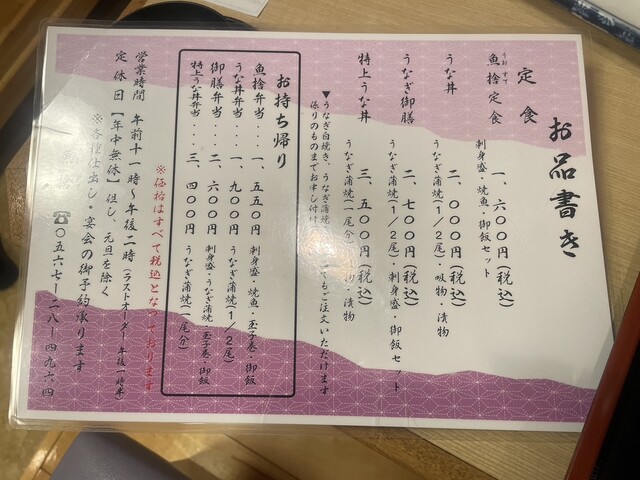 お品書き
定食
うお すて
魚捨定食 一、六〇〇円(税込)
刺身盛・焼魚・御飯セット
うな丼 二、〇〇〇円(税込)
うなぎ蒲焼(1/2尾)・吸物・漬物
うなぎ御膳 二、七〇〇円(税込)
うなぎ蒲焼(1/2尾)・刺身盛・御飯セット
特上うな丼 三、五〇〇円(税込)
うなぎ蒲焼(一尾分)・吸物・漬物
▼うなぎ白焼き、うなぎ蒲焼 でもご注文いただけます
係りのものまでお申し付け
お持ち帰り
魚捨弁当・・・一、五五〇円 刺身盛・焼魚・玉子巻・御飯
うな丼弁当・・・一、九〇〇円 うなぎ蒲焼(1/2尾)
御膳弁当・・・二、六〇〇円 刺身盛・うなぎ蒲焼・玉子巻・御飯
特上うな丼弁当・・三、四〇〇円 うなぎ蒲焼(一尾分)
※価格はすべて税込となっております
営業時間 午前十一時~午後二時(ラストオーダー 午後一時半)
定休日【年中無休】但し、元旦を除く
※各種仕出し・宴会の御予約承ります
☎〇五六七ー二八ー四九六四